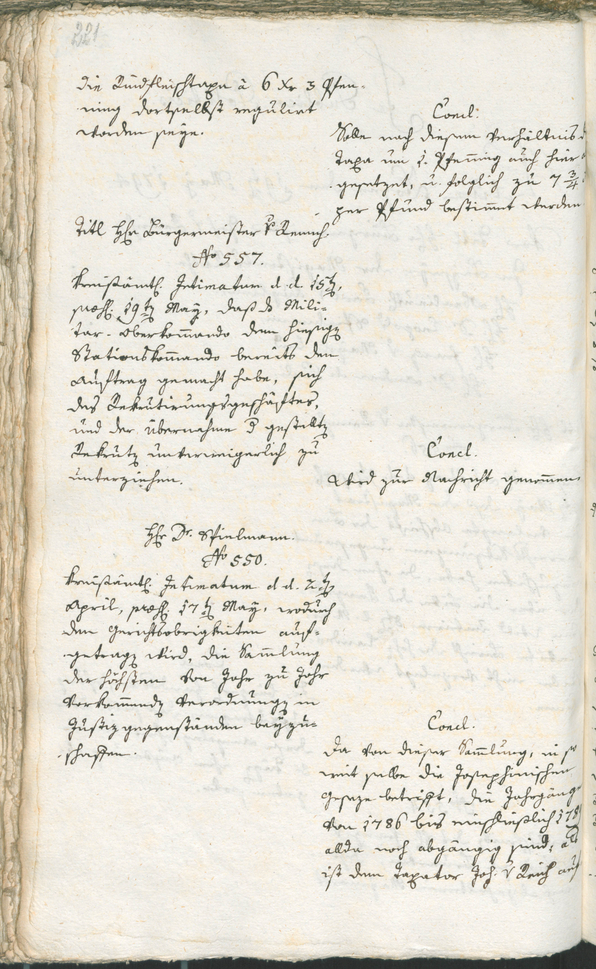 221
die Rindfleischtaxa à 6 Xr 3 Pfen-
ning dortselbst regulirt
worden seye.
Concl:
Solle nach diesem Verhältnis d
Taxa um 1. Pfenning auch hier
gesetzet, u. folglich zu 7 3/4
per Pfund bestimmt werden
Titl Hr Bürgermeister v Remich.
No 557.
Kreisämtl. Intimatum d. d. 15t,
præs. 19t May, daß dz Mili-
tar-Oberkommando dem hiesigen
Stationskommando bereits den
Auftrag gemacht habe, sich
des Rekrutirungsgeschäftes,
und der Übernahme d gestellten
Rekruten unverweigerlich zu
unterziehen.
Concl.
Wird zur Nachricht genommen
Hr Dr. Spielmann.
No 550.
Kreisämtl. Intimatum d. d. 2t
April, præs. 17t May, wodurch
den Gerichtsobrigkeiten auf-
getragen wird, die Sammlung
der höchsten von Jahr zu Jahr
vorkommenden Verordnungen in
Justizgegenständen beyzu-
schaffen.
Concl:
Da von dieser Sammlung, in so
weit selbe die Josephinischen
Geseze betrifft, die Jahrgänge
von 1786 bis einschließlich 178
allda noch abgängig sind;
ist dem Taxator Joh. v Reich auf